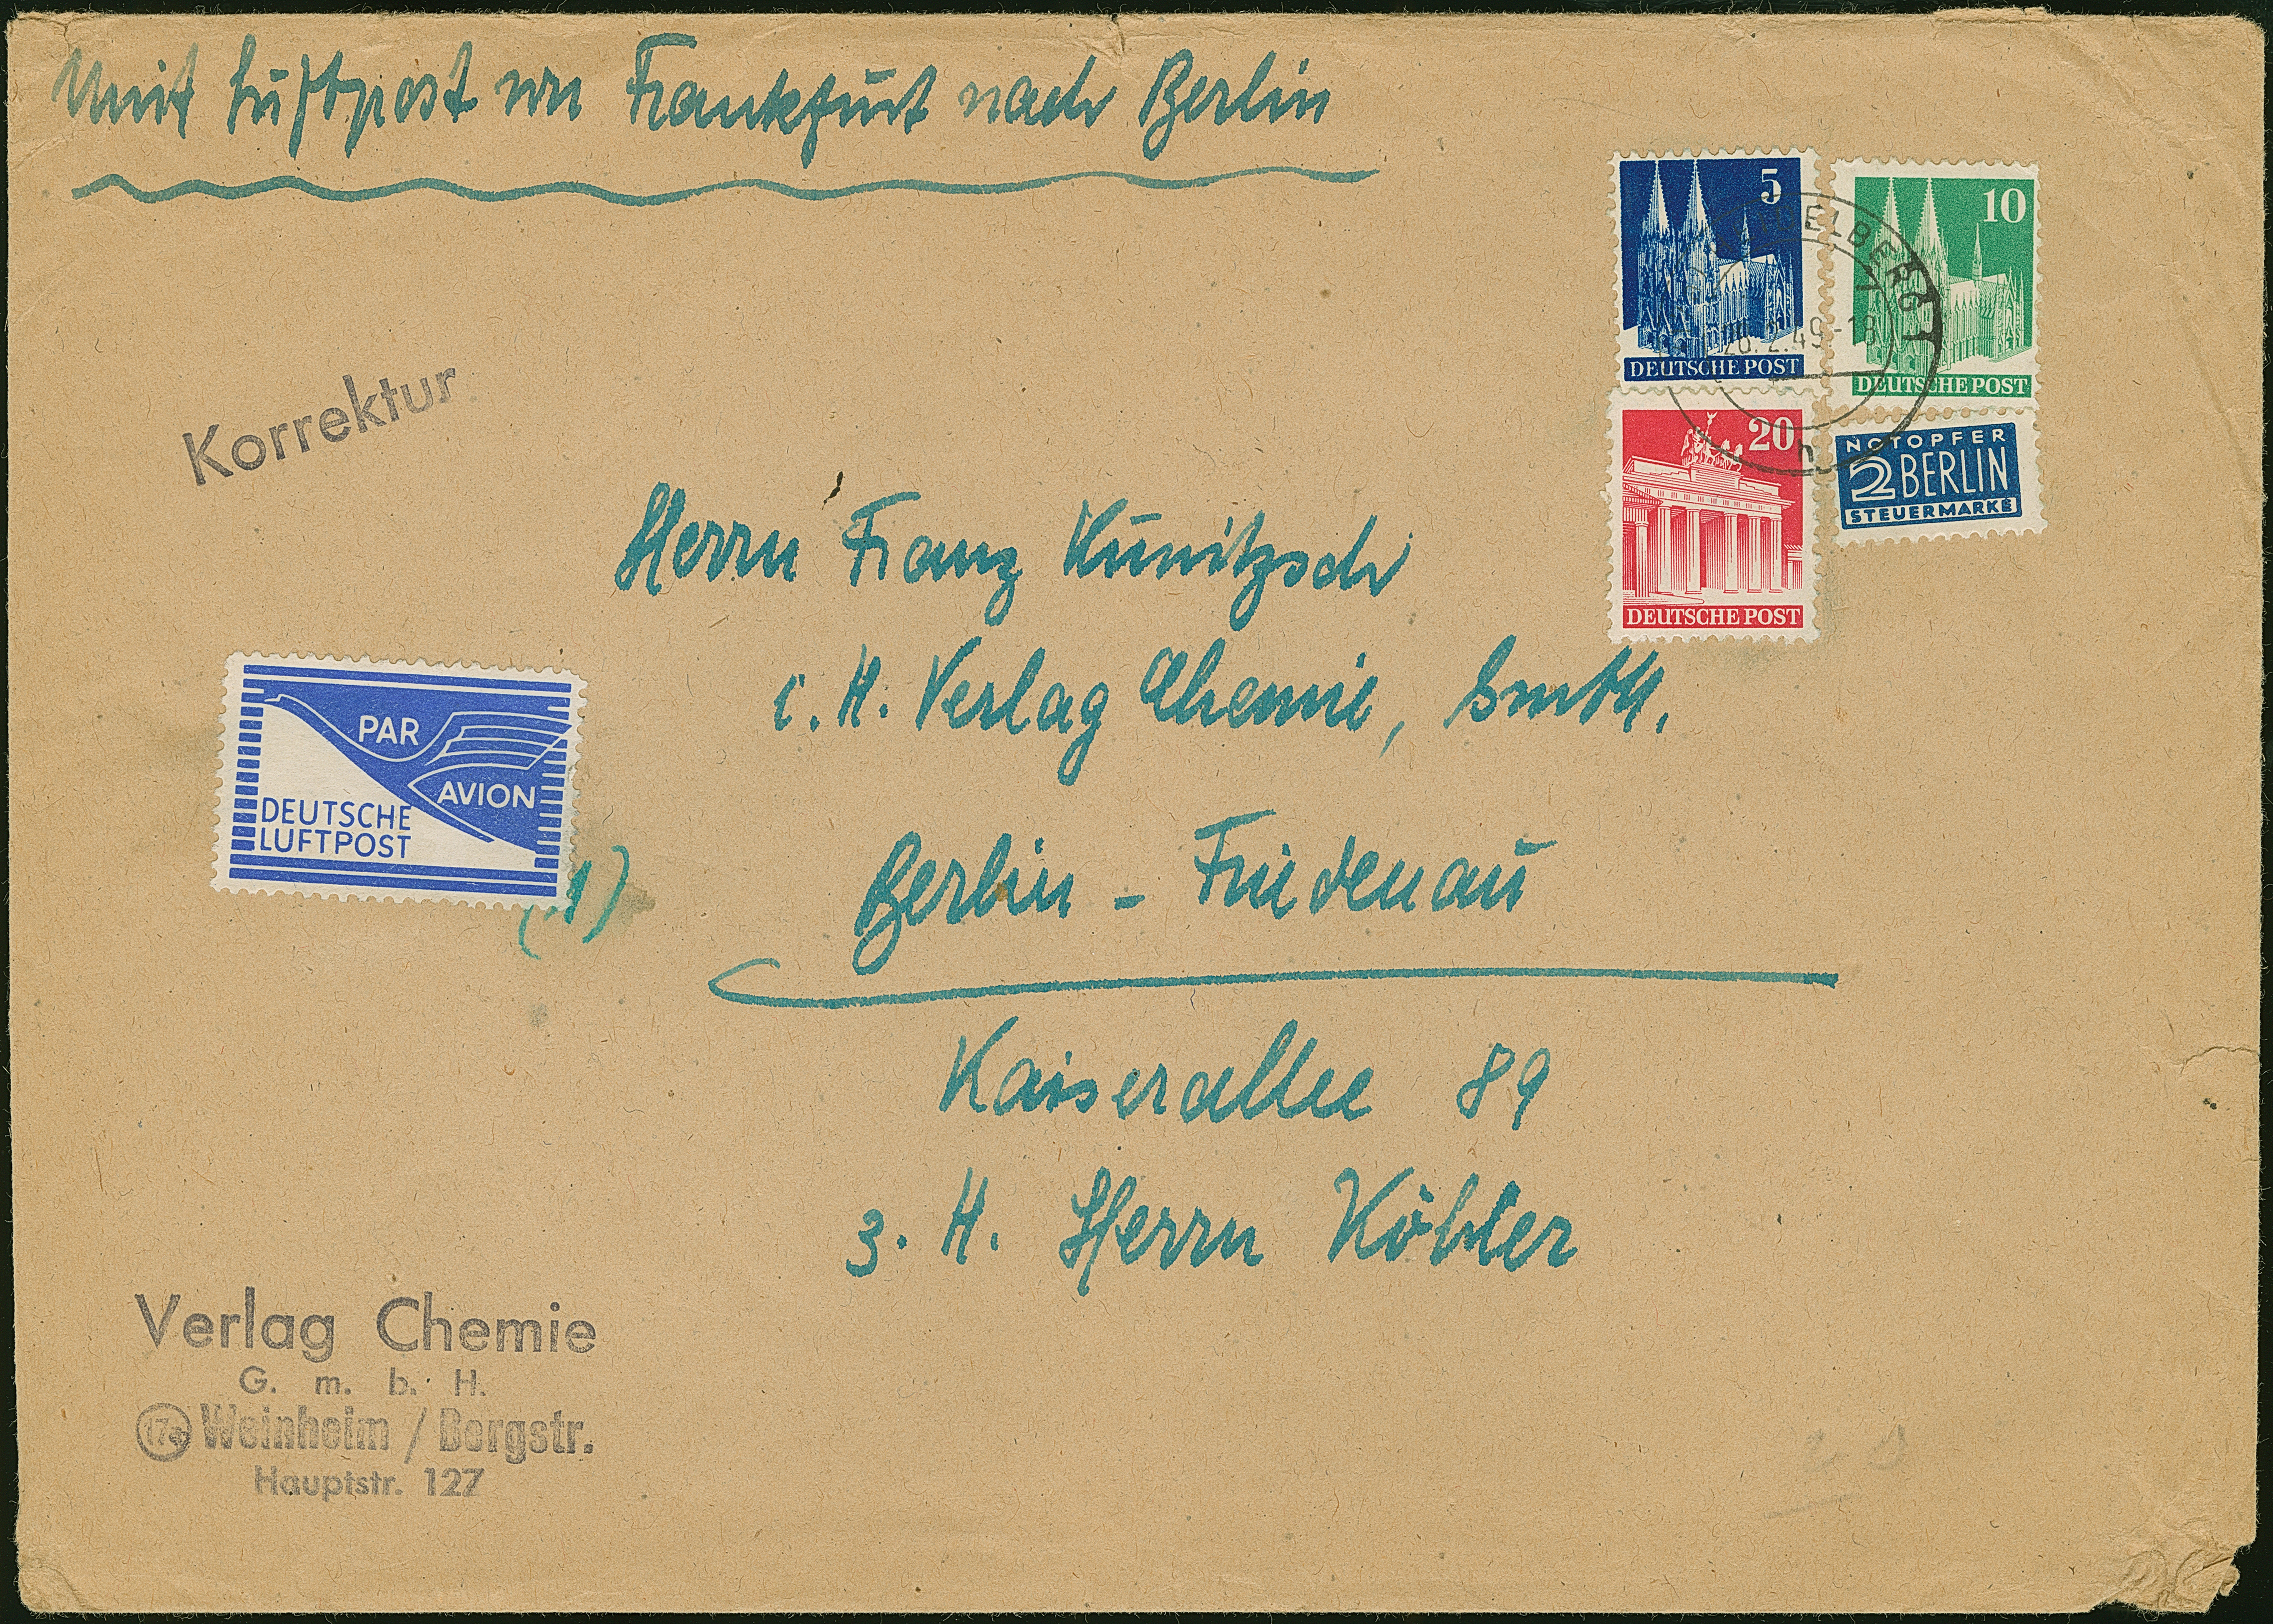 Mit Luftpost von Frankfurt nach Berlin
5
DEUTSCHE POST
10
DEUTSCHE POST
ELBERG
26.2.49.-18
20
DEUTSCHE POST
NOTOPFER
2 BERLIN
STEUERMARKE
Korrektur
Herrn Franz Kunitzsch
i. H. Verlag Chemie, GmbH.
PAR
AVION
DEUTSCHE
LUFTPOST
(1)
Berlin - Friedenau
Kaiserallee 89
z. H. Herrn Köhler
Verlag Chemie
G. m. b. H.
17a Weinheim / Bergstr.
Hauptstr. 127